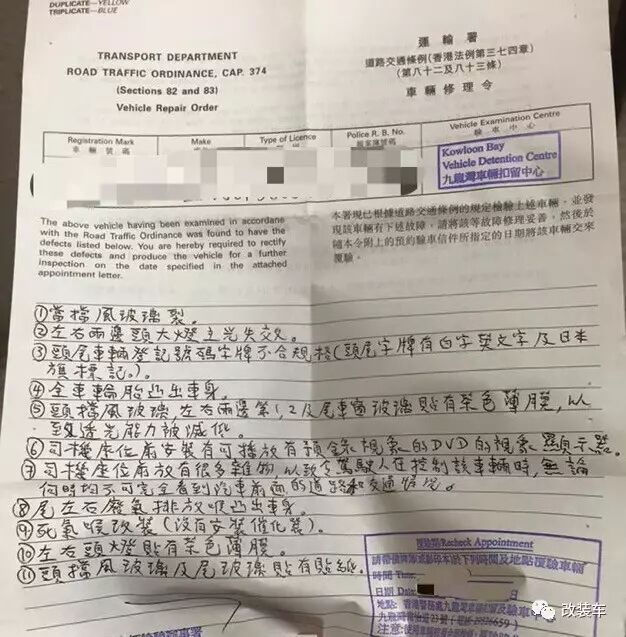 DUPLICATE—YELLOW
TRIPLICATE—BLUE
TRANSPORT DEPARTMENT
ROAD TRAFFIC ORDINANCE, CAP. 374
(Sections 82 and 83)
Vehicle Repair Order
運輸署
道路交通條例(香港法例第三七四章)
(第八十二及八十三條)
車輛修理令
Registration Mark
車輛號碼
Make
Type of Licence
Police R. B. No.
Vehicle Examination Centre
驗車中心
Kowloon Bay
Vehicle Detention Centre
九龍灣車輛扣留中心
The above vehicle having been examined in accordane
with the Road Traffic Ordinance was found to have the
defects listed below. You are hereby required to rectify
these defects and produce the vehicle for a further
inspection on the date specified in the attached
appointment letter.
本署現已根據道路交通條例的規定檢驗上述車輛，並發
現該車輛有下述故障。請將該等故障修理妥善，然後於
隨本令附上的預約驗車信件所指定的日期將該車輛交來
覆驗。
①當擋風玻璃裂。
②左右兩邊頭大燈主光失效。
③頭尾車輛登記號碼字牌不合規格(頭尾字牌有白字英文字及日本
旗標記)。
④全車輪胎凸出車身。
⑤頭擋風玻璃左右兩邊第1,2及尾車窗玻璃貼有茶色薄膜，以
致透光能力被減低。
⑥司機座位前安裝有可播放有預錄視象的DVD的視象顯示器。
⑦司機座位前放有很多雜物以致令駕駛人在控制該車輛時，無論
何時均不可完全看到汽車前面的道路和交通情況。
⑧尾左右廢氣排放喉凸出車身。
⑨死氣喉改裝(沒有安裝催化器)。
⑩左右頭燈貼有茶色薄膜。
⑪頭擋風玻璃及尾玻璃貼有貼紙。
Recheck Appointment
於下列時間及地點覆驗車輛
時間 Time:
日期 Date
地點:
改装车